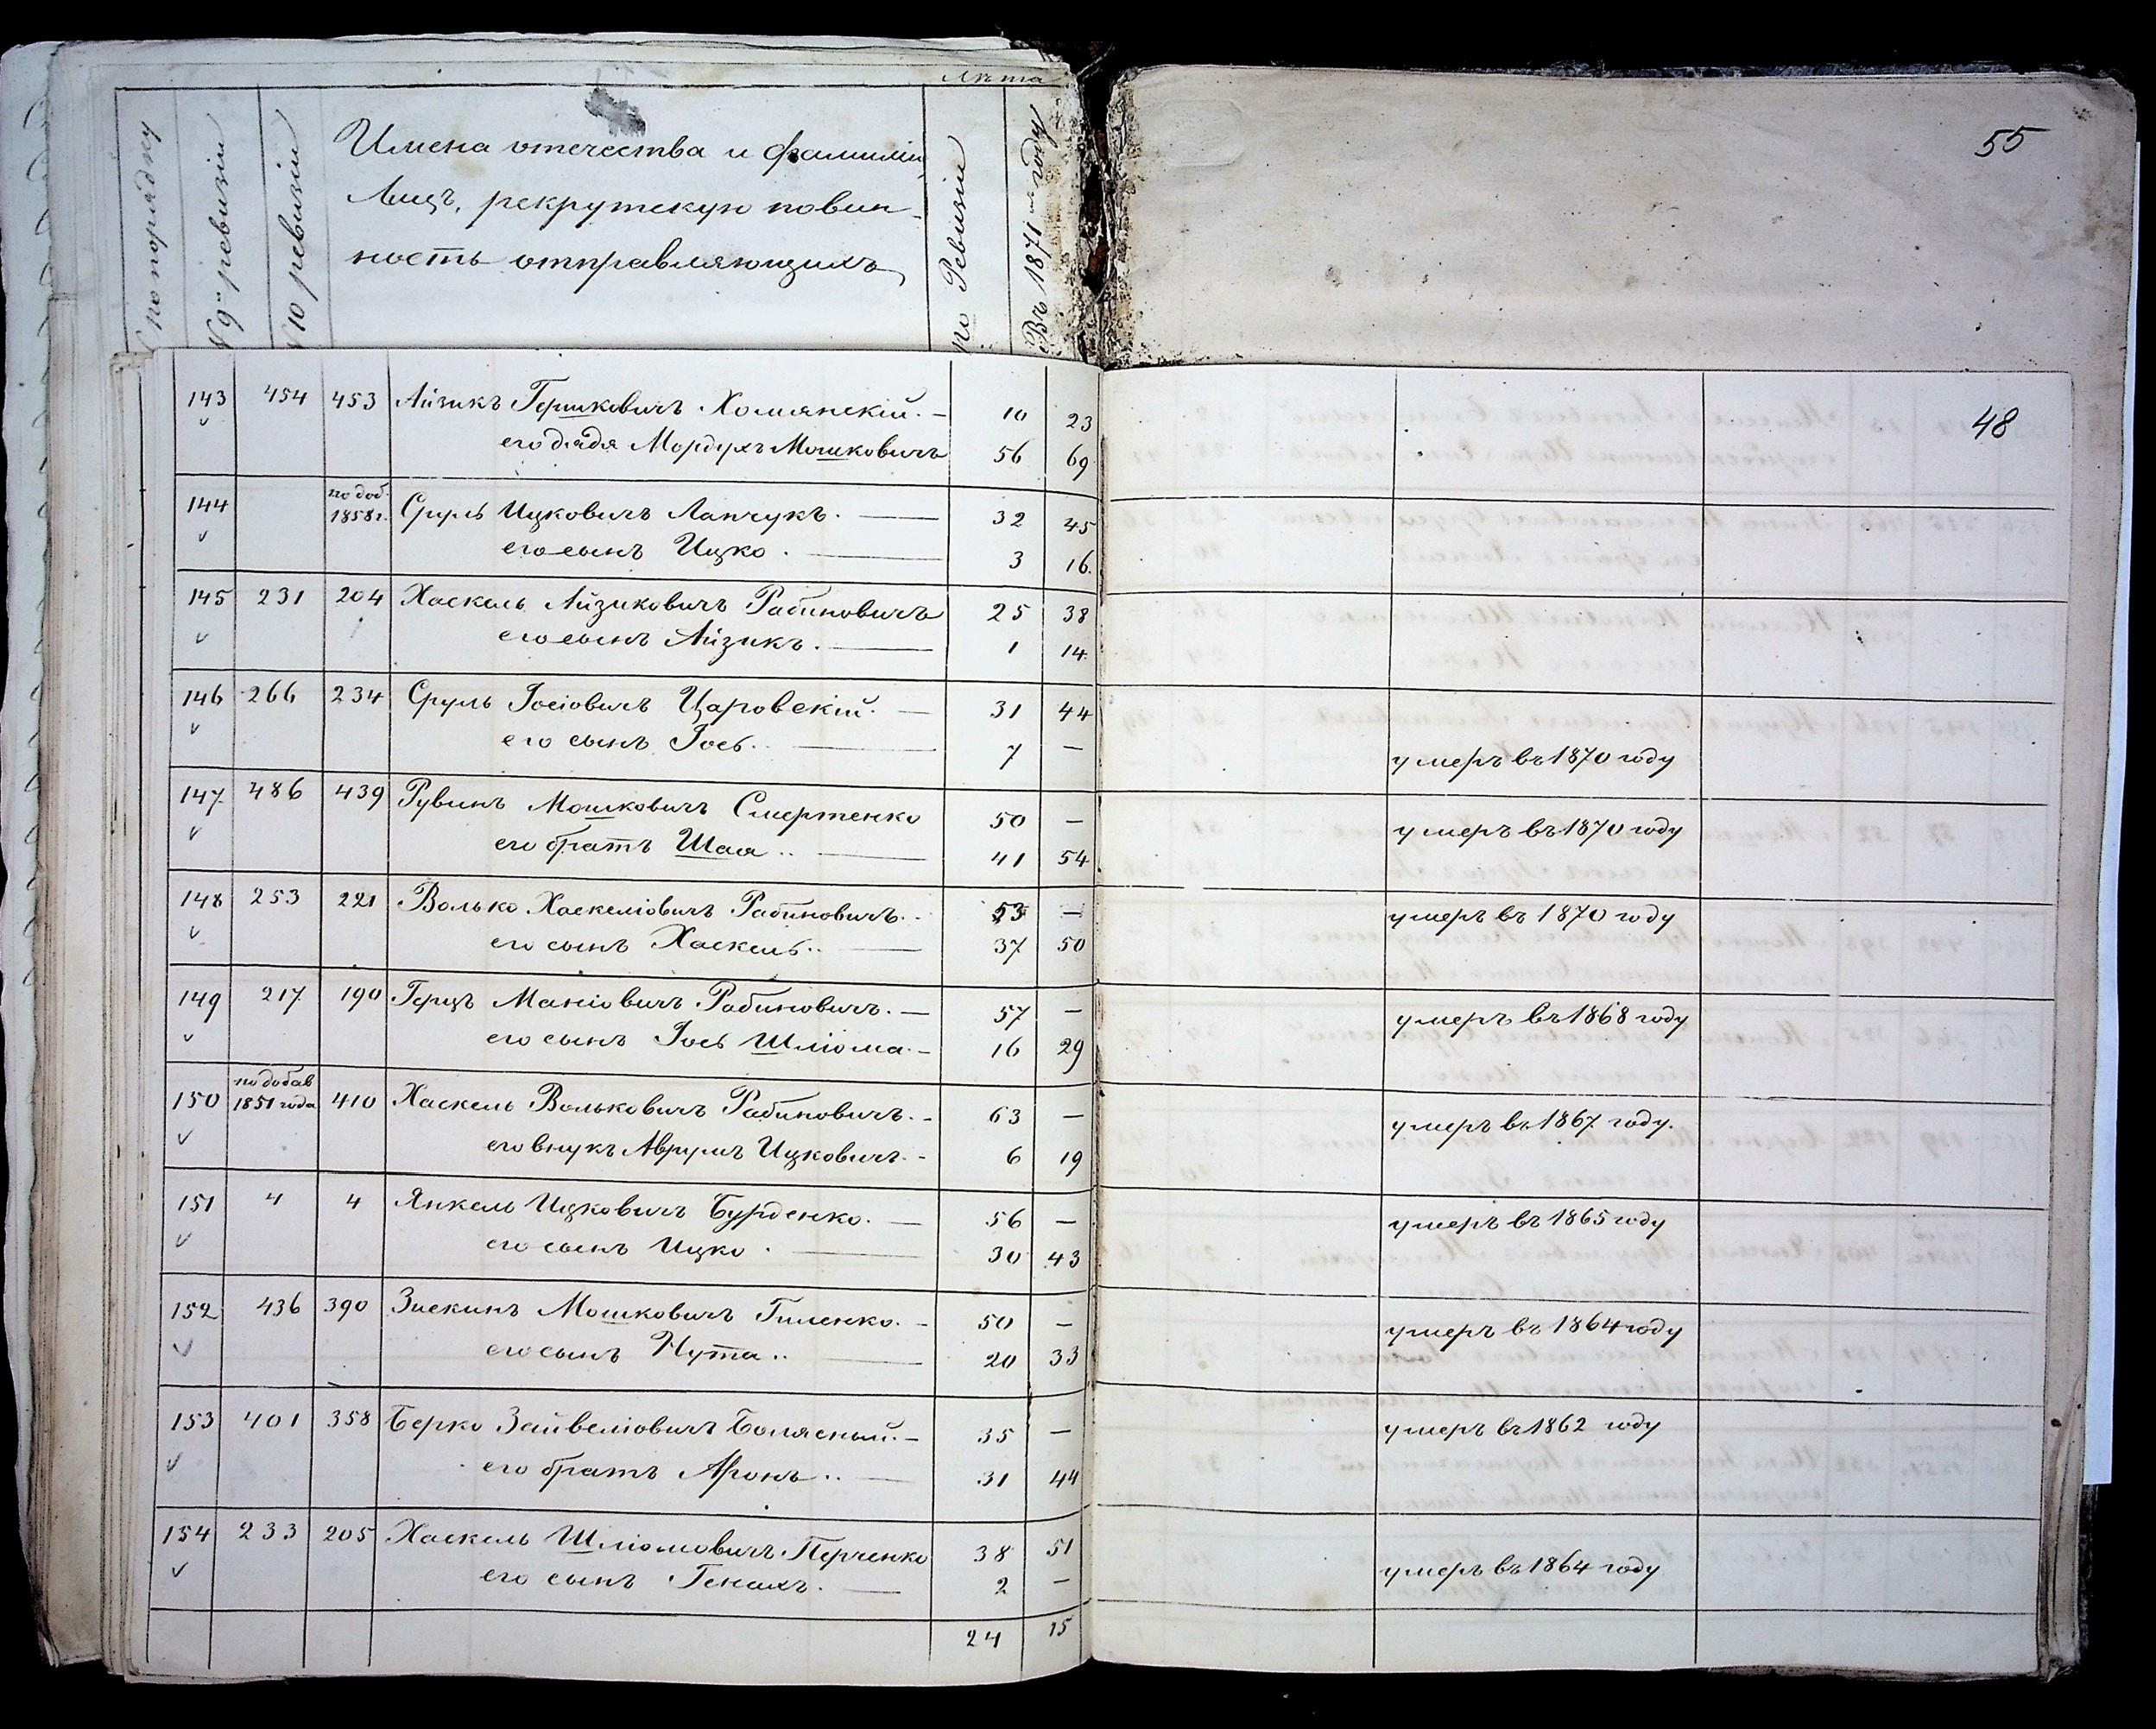 Лѣта
№ по порядку
№ 9й ревизіи
№ 10 ревизіи
Имена отечества и фамиліи
Лицъ, рекрутскую повин-
ность отправляющихъ
по Ревизіи
Въ 1871мъ году
55
48
143 454 453 Айзикъ Гершковичъ Хомянскій. — 10 23
его дядя Мордухъ Мошковичъ 56 69
144 по доб. 1858 г. Сруль Ицковичъ Лапчукъ. — 32 45
его сынъ Ицко. — 3 16.
145 231 204 Хаскель Айзиковичъ Рабиновичъ 25 38
его сынъ Айзикъ. — 1 14
146 266 234 Сруль Іосіовичъ Царовскій. — 31 44
его сынъ Іось. — 7 — умеръ въ 1870 году
147 486 439 Рувинъ Мошковичъ Смертенко 50 — умеръ въ 1870 году
его братъ Шая.. — 41 54
148 253 221 Волько Хаскеліовичъ Рабиновичъ.. 53 — умеръ въ 1870 году
его сынъ Хаскель.. — 37 50
149 217 190 Герцъ Маніовичъ Рабиновичъ. — 57 — умеръ въ 1868 году
его сынъ Іось Шліома. - 16 29
150 по добав 1851 года 410 Хаскель Вольковичъ Рабиновичъ. - 63 — умеръ въ 1867 году.
его внукъ Аврумъ Ицковичъ. - 6 19
151 4 4 Янкель Ицковичъ Бурденко. — 56 — умеръ въ 1865 году
его сынъ Ицко. — 30 43
152 436 390 Зискинъ Мошковичъ Гиленко. - 50 — умеръ въ 1864 году
его сынъ Нута.. — 20 33
153 401 358 Берко Зейвеліовичъ Болясный. - 35 — умеръ въ 1862 году
его братъ Аронъ.. — 31 44
154 233 205 Хаскель Шліомовичъ Перченко 38 51
его сынъ Генахъ. — 2 — умеръ въ 1864 году
24 15